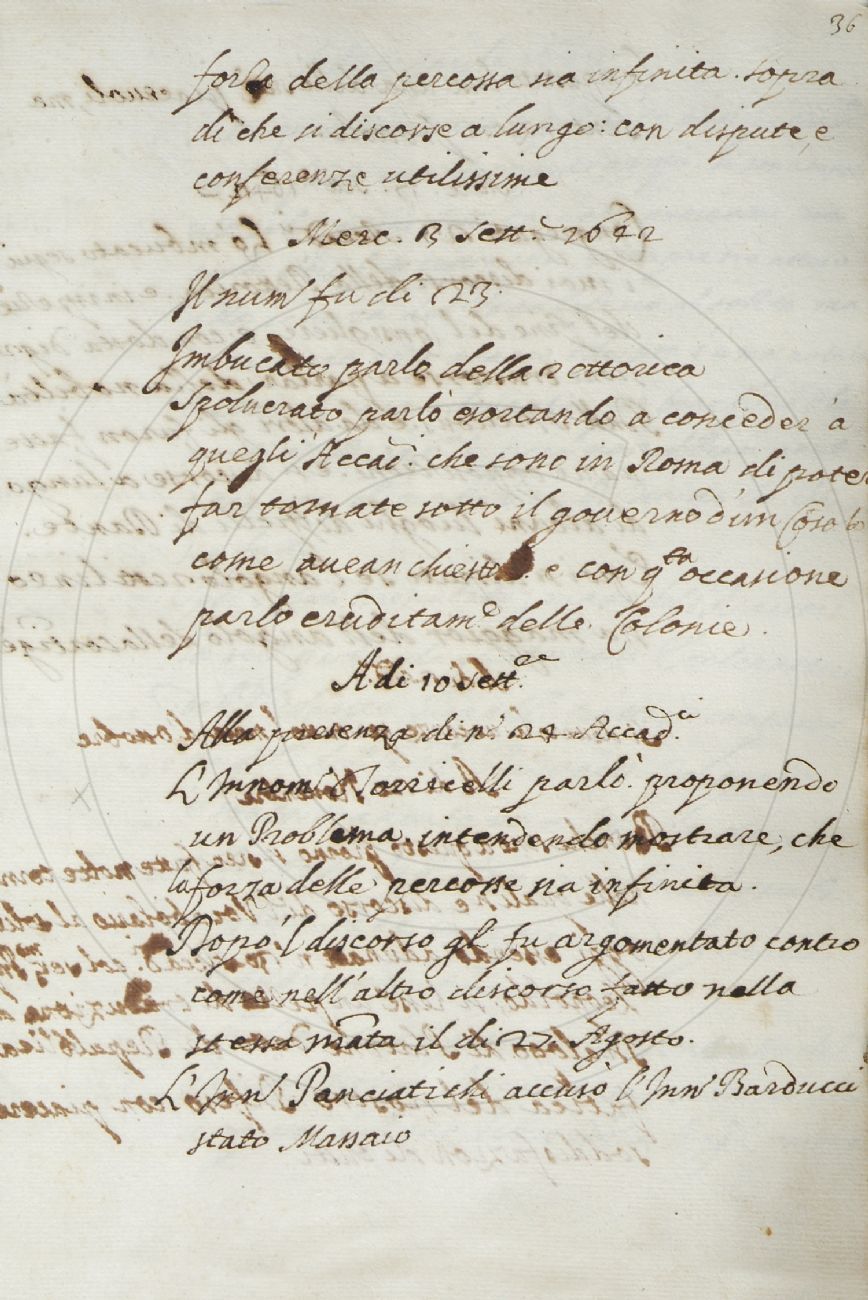 36
forza della percossa sia infinita. sopra
di che si discorse a lungo: con dispute, e
conferenze utilissime
Merc. 3 Sett.e 1642
Il num.o fu di 23.
Imbucato parlò della rettorica
Spolverato parlò esortando a conceder' a
quegli Accad.i che sono in Roma di poter
far tornate sotto il governo d'un
come avean chiesto e con q.ta occasione
parlò eruditam.e delle Colonie.
A di 10 Sett.e
Alla presenza di n.o 24 Accad.ci
L'Innom.o Torricelli parlò. proponendo
un Problema. intendendo mostrare, che
la forza delle percosse sia infinita.
Dopo 'l discorso gl' fu argomentato contro
come nell'altro discorso fatto nella
stessa mat.a il di 27. Agosto.
L'Inn.o Panciatichi accusò l'Inn.o Barducci
stato Massaio